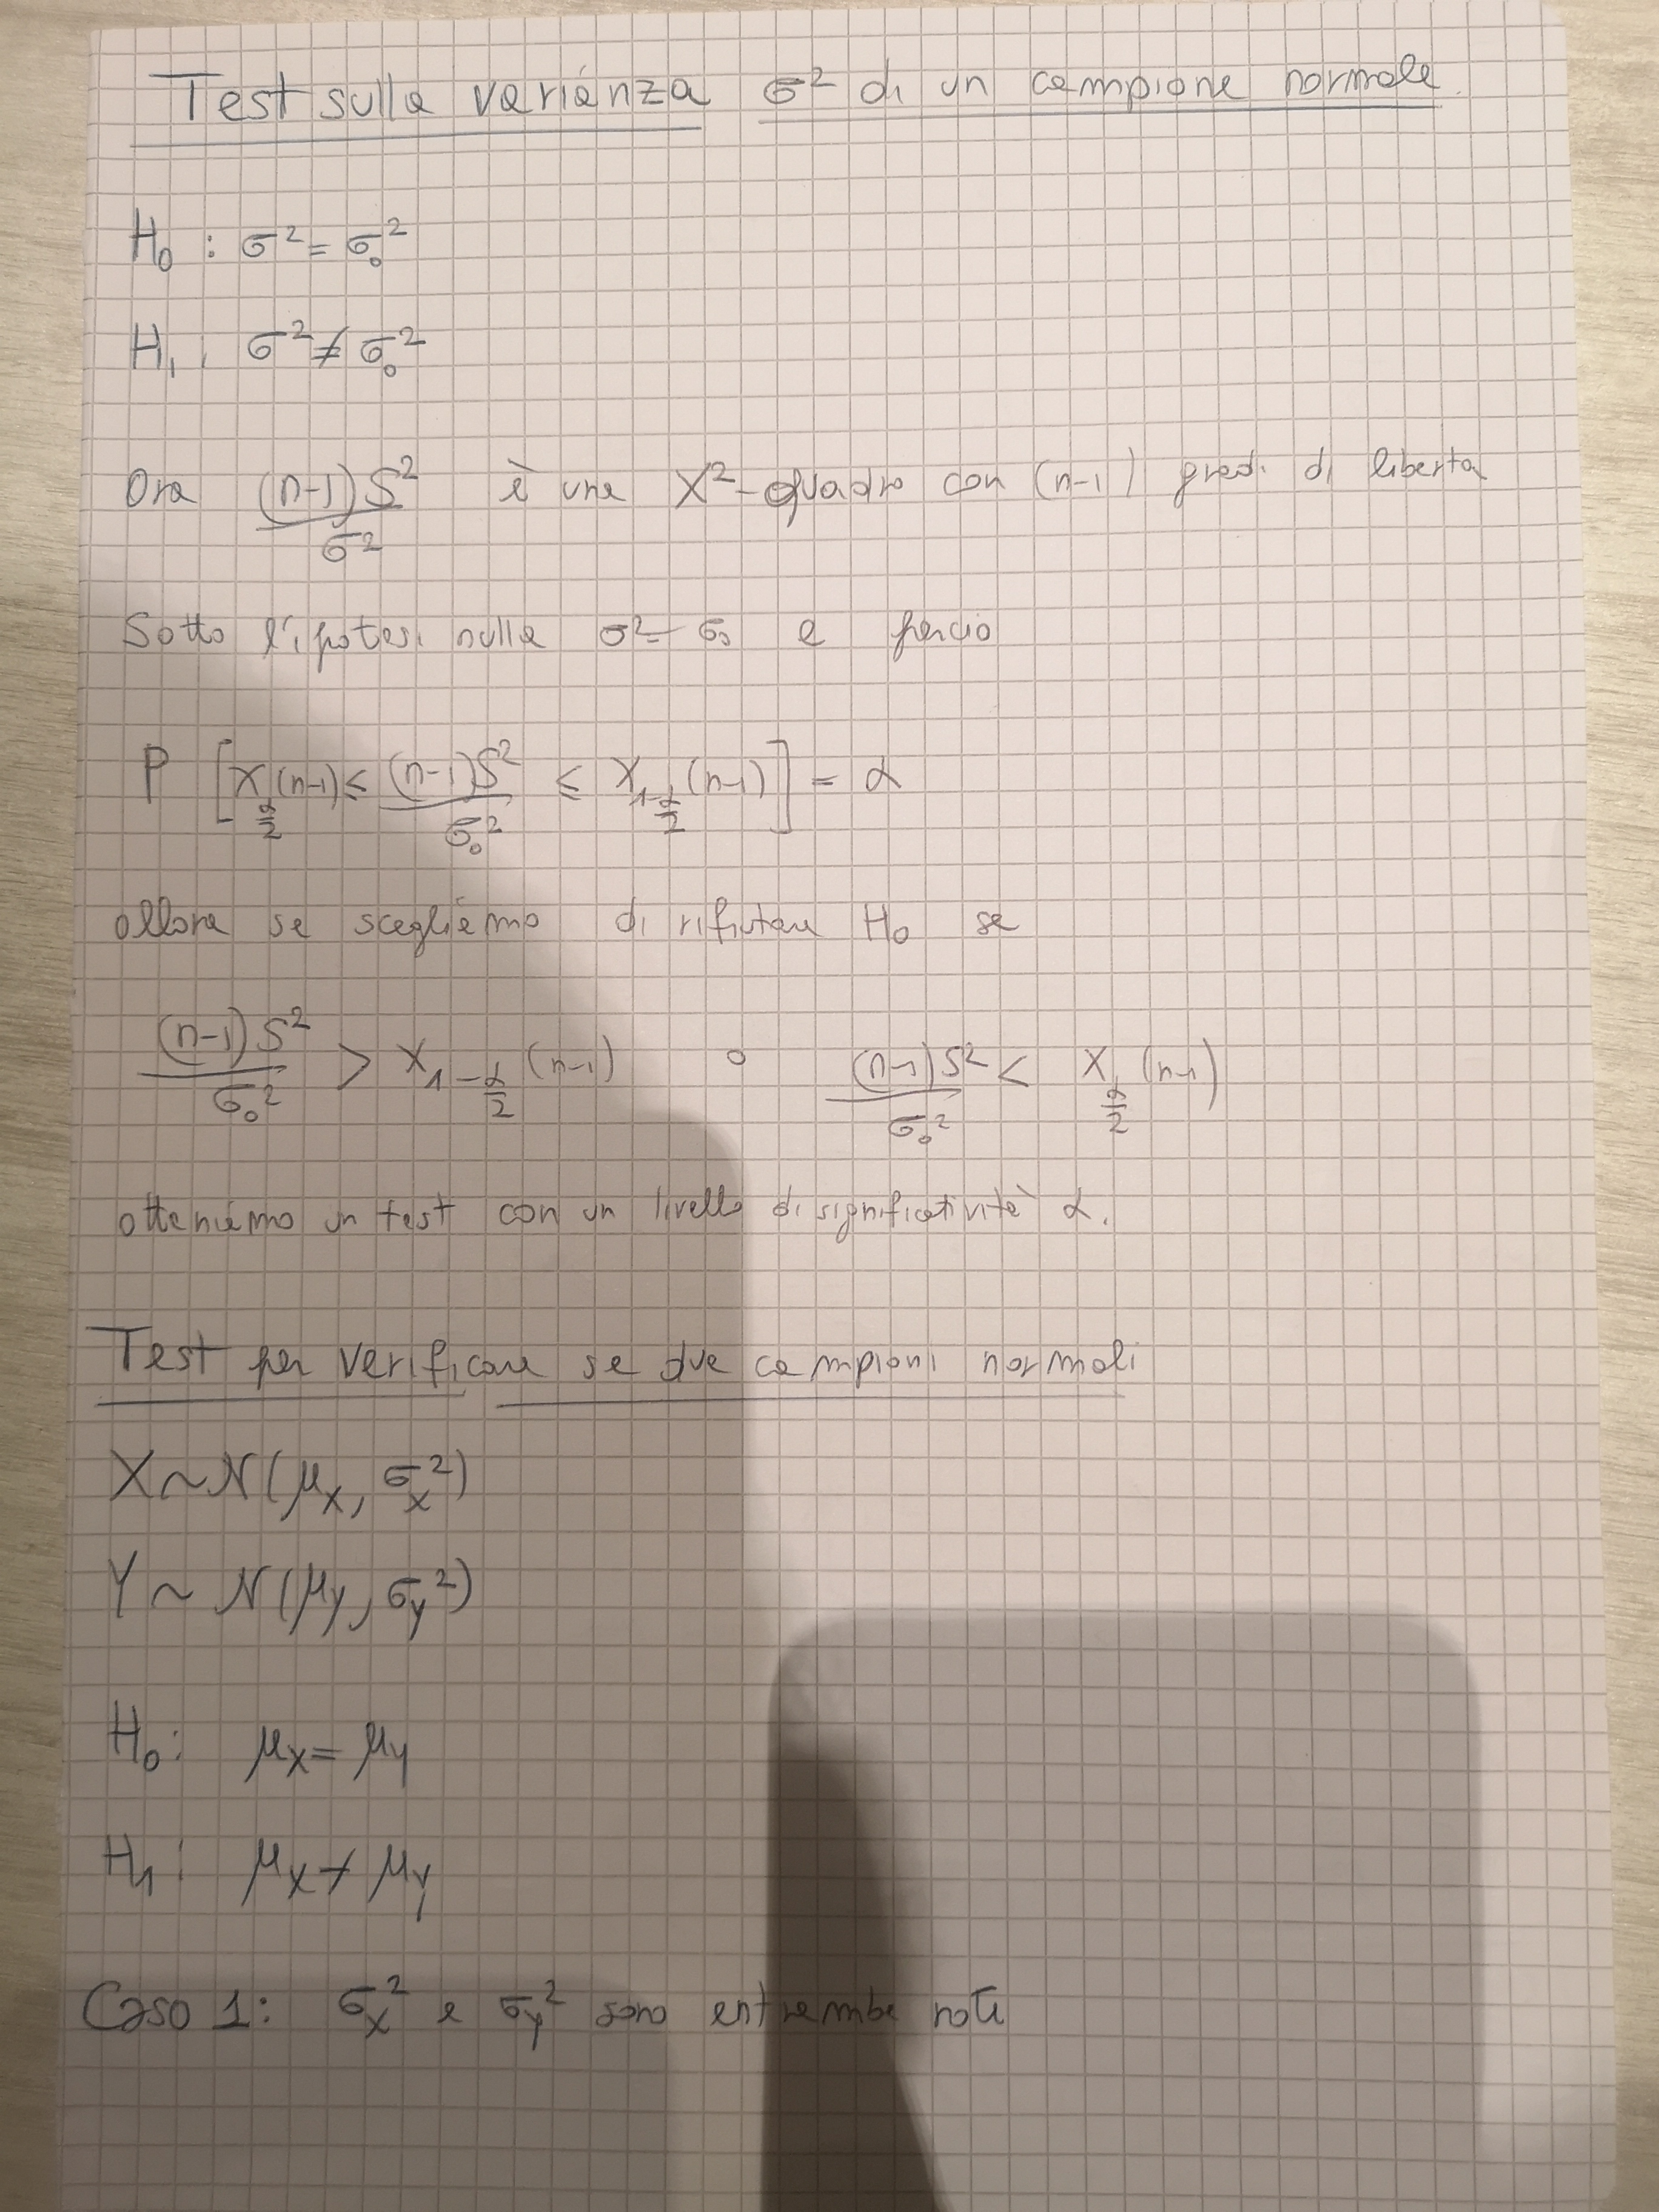 Test sulla varianza σ² di un campione normale.
H₀ : σ² = σ₀²
H₁ : σ² ≠ σ₀²
Ora (n-1)S²/σ² è una X²-quadro con (n-1) gradi di liberta
Sotto l'ipotesi nulla σ² = σ₀ e perciò
P [X_{α/2}(n-1) ≤ (n-1)S²/σ₀² ≤ X_{1-α/2}(n-1)] = α
allora se scegliamo di rifiutare H₀ se
(n-1)S²/σ₀² > X_{1-α/2}(n-1) o (n-1)S²/σ₀² < X_{α/2}(n-1)
otteniamo un test con un livello di significatività α.
Test per verificare se due campioni normali
X ~ N(μ_X, σ_X²)
Y ~ N(μ_Y, σ_Y²)
H₀: μ_X = μ_Y
H₁: μ_X ≠ μ_Y
Caso 1: σ_X² e σ_Y² sono entrambe note